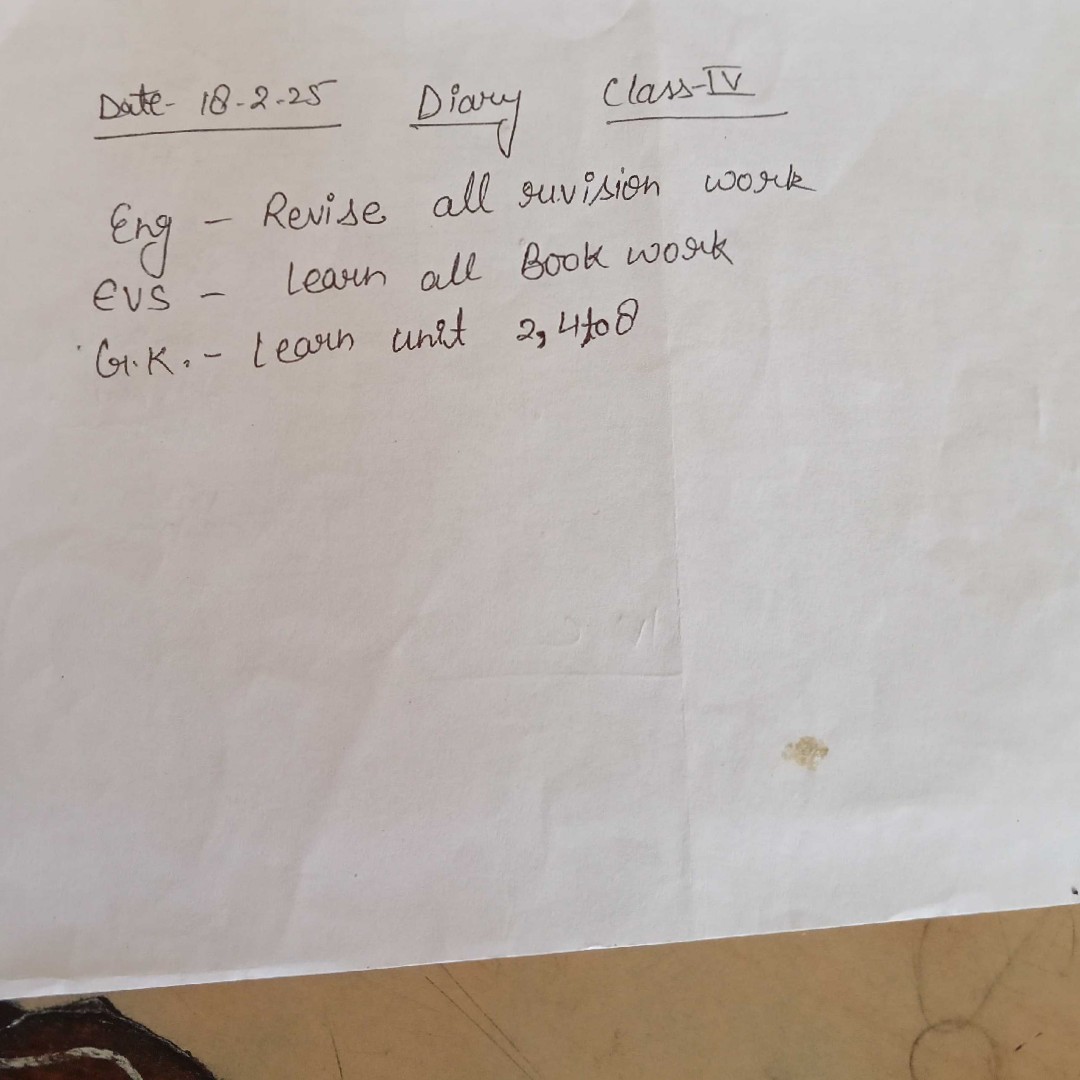 Date- 18-2-25 Diary Class-IV
Eng - Revise all revision work
EVS - Learn all Book work
G.K. - Learn unit 2, 4 to 8